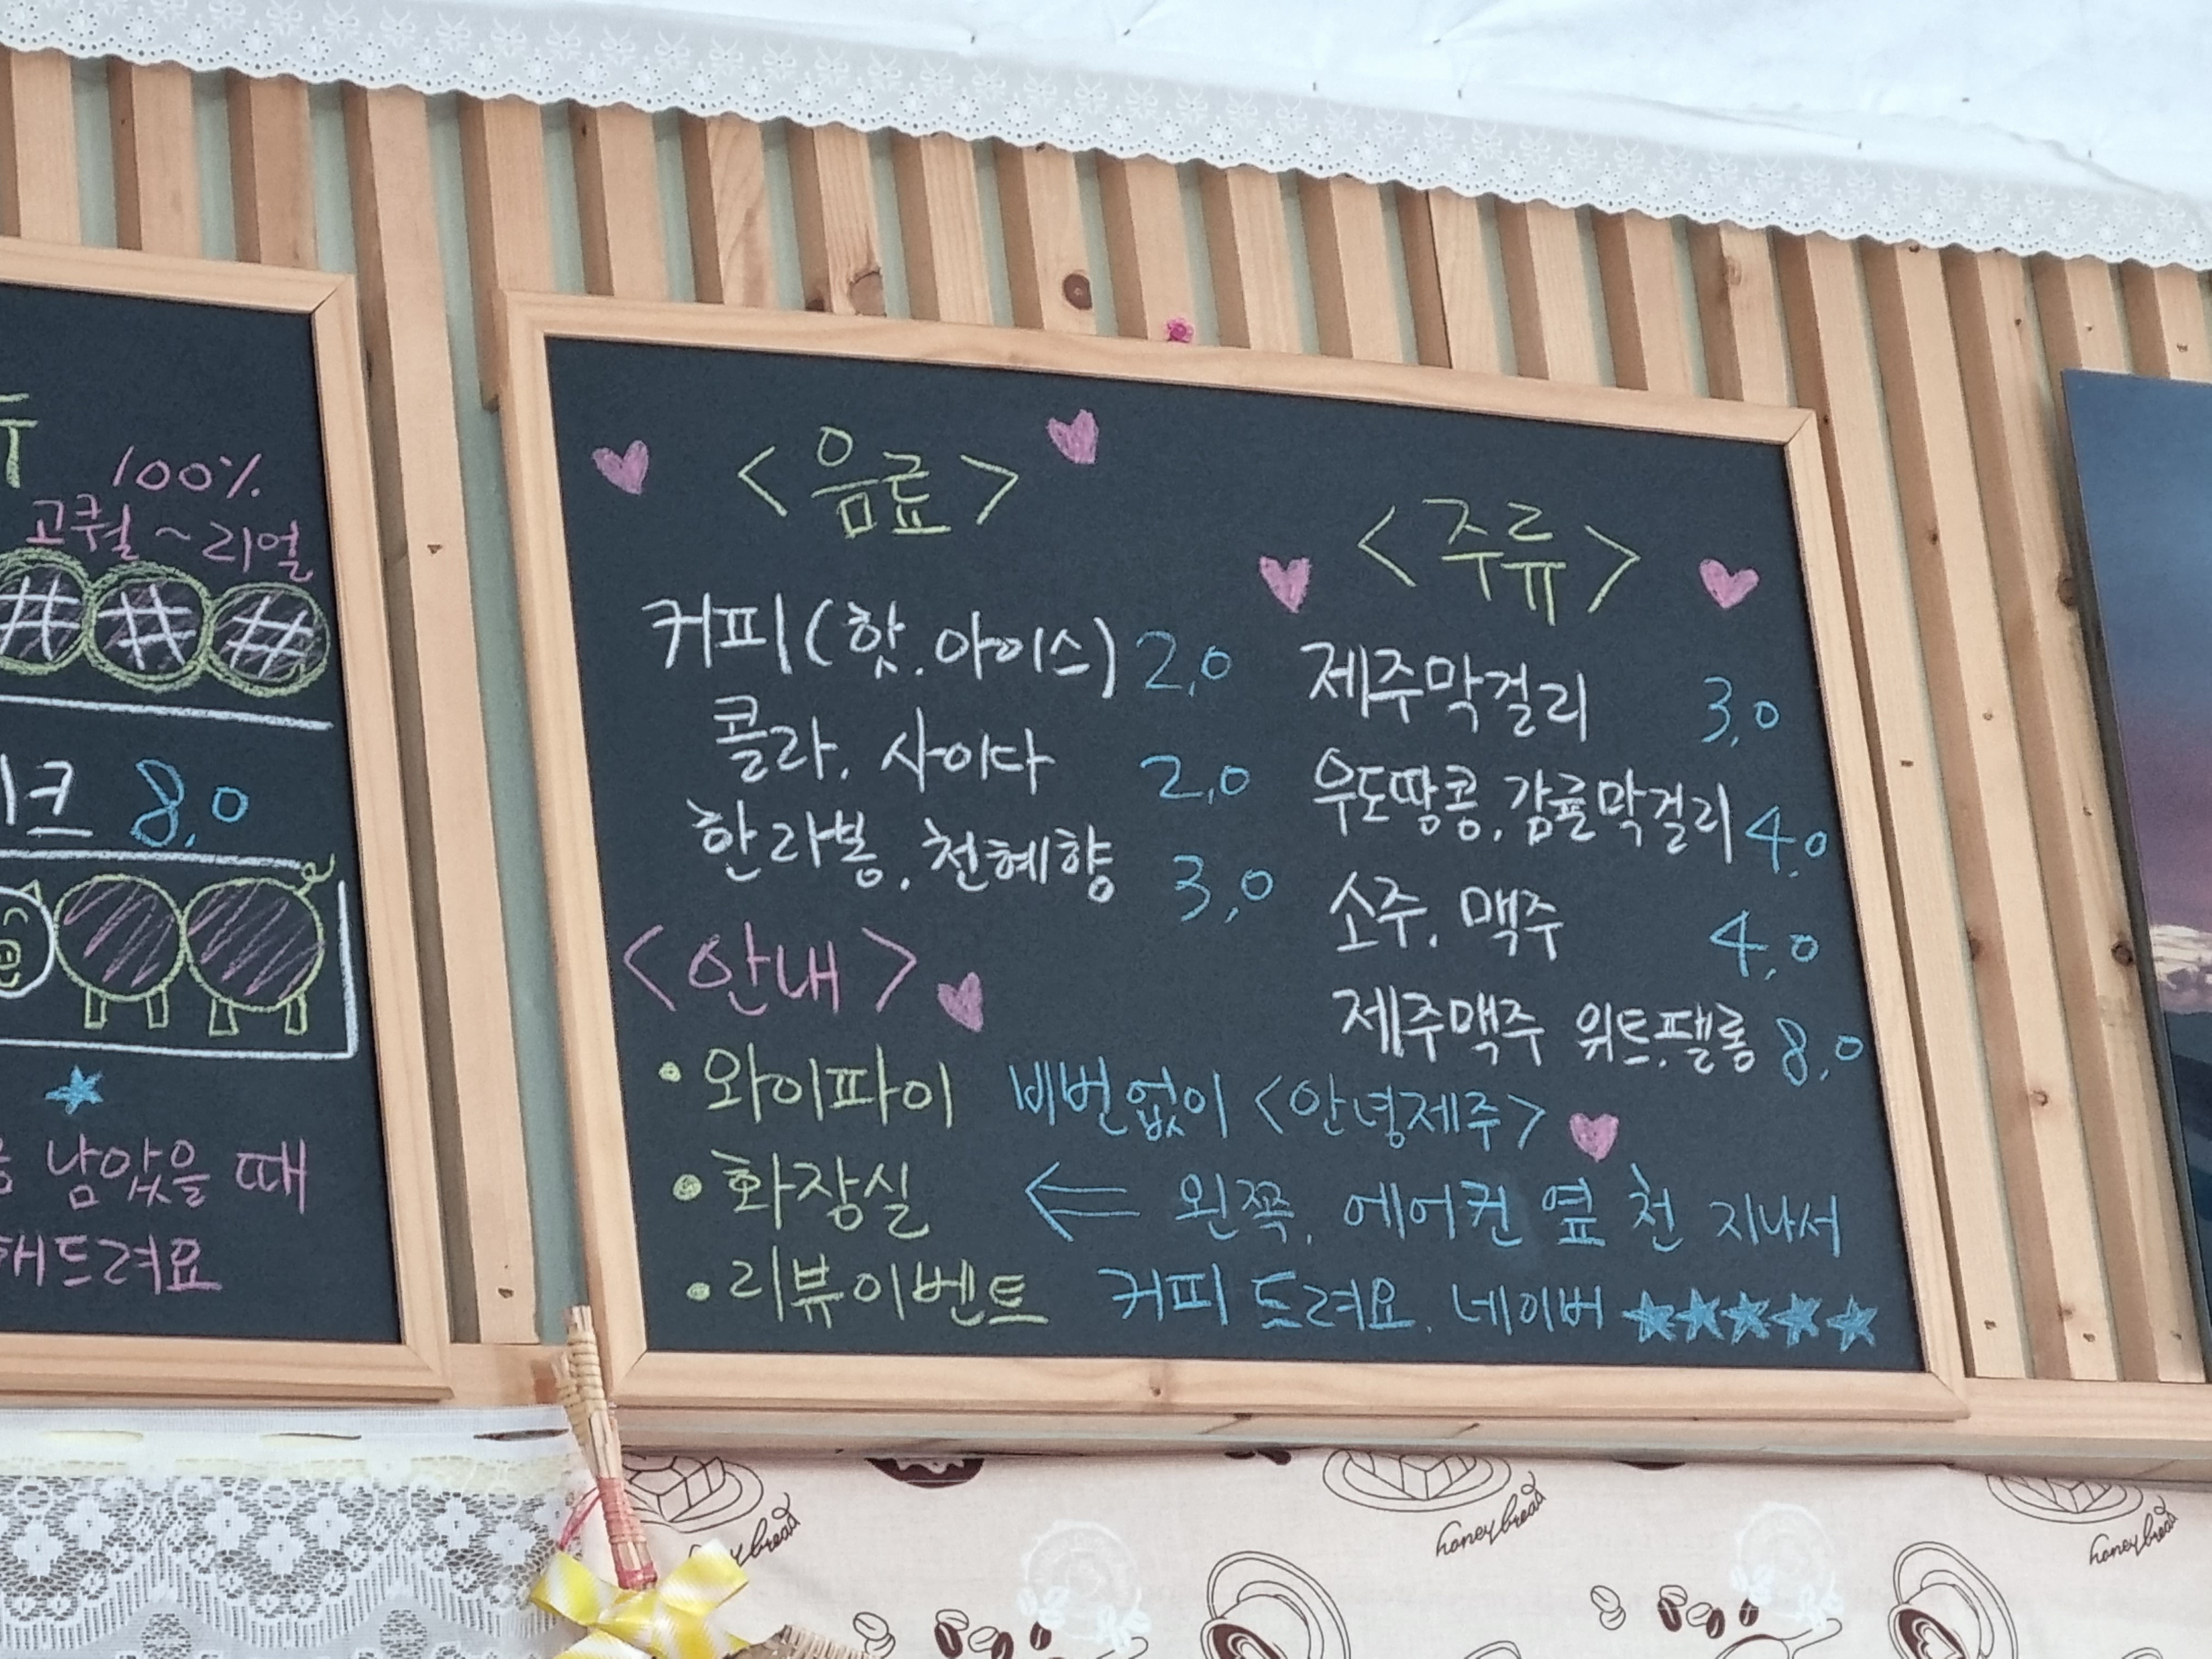 100%
고퀄~리얼
8,0
남았을 때
해드려요
<음료>
커피(핫.아이스) 2,0
콜라. 사이다 2,0
한라봉. 천혜향 3,0
<주류>
제주막걸리 3,0
우도땅콩.감귤막걸리 4,0
소주. 맥주 4,0
제주맥주 위트.펠롱 8,0
<안내>
• 와이파이 비번없이 <안녕제주>
• 화장실 ⇐ 왼쪽. 에어컨 옆 천 지나서
• 리뷰이벤트 커피 드려요. 네이버 ★★★★★
honey bread
honey bread
honey bread